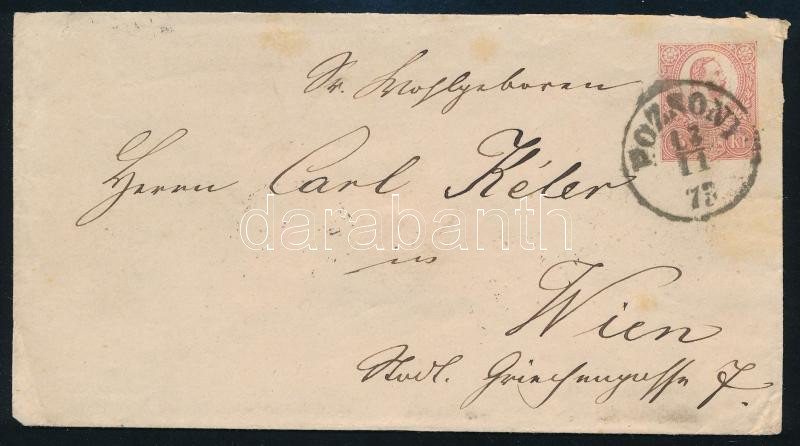 Sr. Wohlgeboren
Herrn Carl Kéler
in
Wien
Stadt. Griechengasse 7.
POZSONY
13
11
73
KR
darabanth